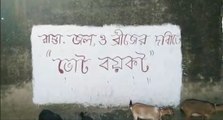 রাস্তা. জল, ও ব্রীজের দাবিতে
"ভোট বয়কট"